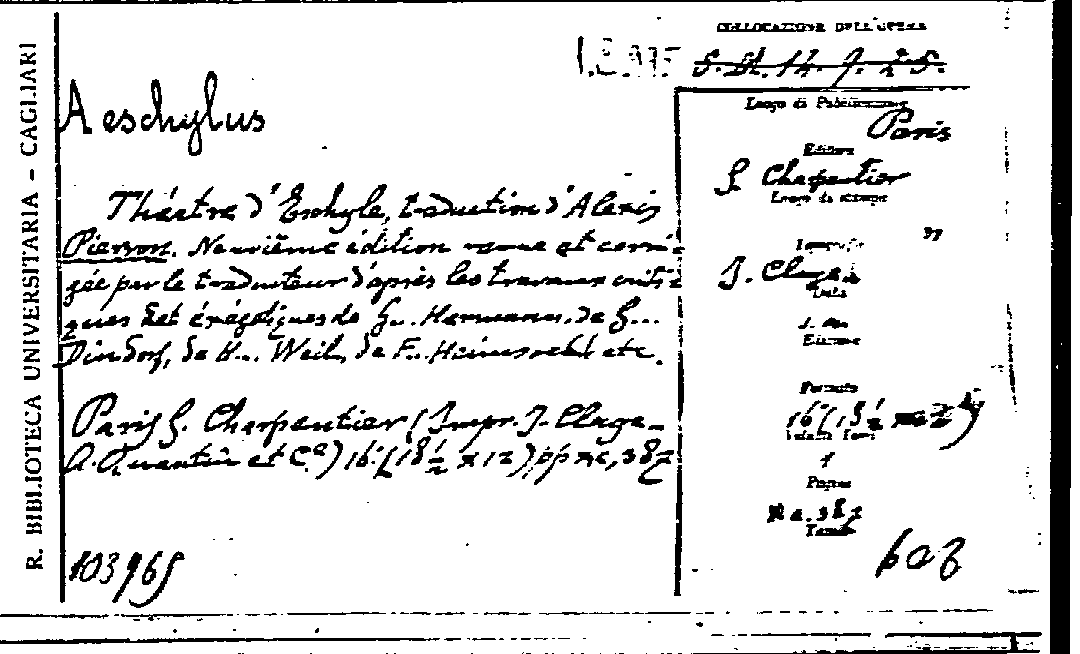 R. BIBLIOTECA UNIVERSITARIA - CAGLIARI
COLLOCAZIONE DELL'OPERA
S. 14. 7. 25.
Aeschylus
Théatre d'Eschyle, traduction d'Alexis
Pierron. Neuvième édition revue et corri-
gée par le traducteur d'après les travaux criti-
ques et éxégétiques de G.. Hermann, de G...
Dindorf, de H... Weil, de F.. Heimsoeht etc.
Paris G. Charpentier (Impr. J. Claye-
A. Quantin et Cº) 16º (18½ x 12) pp xc, 387
103965
Luogo di Pubblicazione
Paris
Editore
G. Charpentier
Luogo di stampa
"
Tipografo
J. Claye
Data
Edizione
Formato
16º (18½ x 12)
1
Pagine
xc. 387